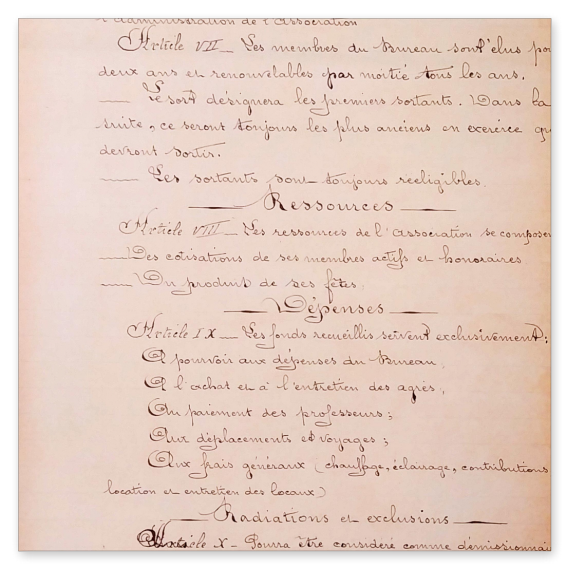 l'administration de l'Association
Article VII_ Les membres du Bureau sont élus pou
deux ans et renouvelables par moitié tous les ans.
___ Le sort désignera les premiers sortants. Dans la
suite, ce seront toujours les plus anciens en exercice qu
devront sortir.
___ Les sortants sont toujours rééligibles.
___ Ressources ___
Article VIII_ Les ressources de l'Association se composen
___ Des cotisations de ses membres actifs et honoraires
___ Du produit de ses fêtes.
___ Dépenses ___
Article IX_ Les fonds recueillis servent exclusivement:
A pourvoir aux dépenses du Bureau;
A l'achat et à l'entretien des agrès;
Au paiement des professeurs;
Aux déplacements et voyages;
Aux frais généraux (chauffage, éclairage, contributions
location et entretien des locaux)
___ Radiations et exclusions ___
Article X_ Pourra être considéré comme démissionnai